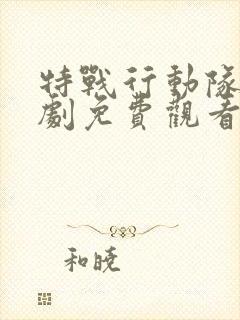 特戰行動隊
劇免費觀看
和曉